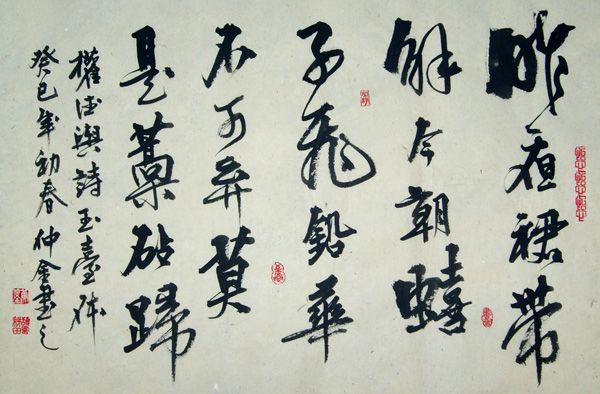 昨夜裙带
解今朝蟢
子飞铅華
不可弃莫
是藁砧歸
權德輿詩玉臺体
癸巳年初春仲金書之